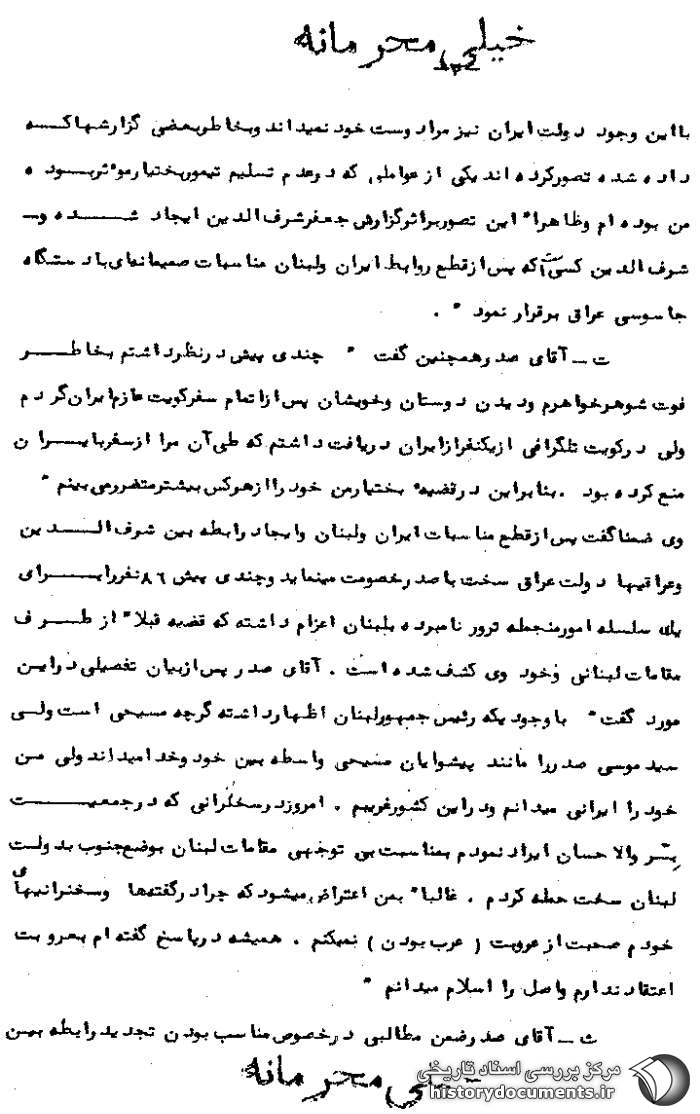 خیلی محرمانه
بااین وجود دولت ایران نیز مرادوست خود نمیداند وبخاطربعضی گزارشهاکـــه
داده شده تصورکرده اند یکی از عواملی که درعدم تسلیم تیموربختیارموثربـــود ه
من بوده ام وظاهرا" این تصوربراثرگزارش جعفرشرف الدین ایجاد شــــده و ـــ
شرف الدین کسی است که پس ازقطع روابط ایران ولبنان مناسبات صمیمانه‌ای بادستگاه
جاسوسی عراق برقرار نمود " .
ت ــ آقای صدرهمچنین گفت " چندی پیش درنظرداشتم بخاطـــر
فوت شوهرخواهرم ودیدن دوستان وخویشان پس ازاتمام سفرکویت عازم ایران گردم
ولی درکویت تلگرافی ازیکنفرازایران دریافت داشتم که طی آن مرا ازسفربایـــران
منع کرده بود . بنابراین درقضیه بختیارمن خودراازهرکس بیشترمتضررمی بینم "
وی ضمناگفت پس ازقطع مناسبات ایران ولبنان وایجادرابطه بین شرف الـــدین
وعراقیها دولت عراق سخت باصدرخصومت مینماید وچندی پیش ۸۶نفررابـــرای
یک سلسله امورمنجمله ترور نامبرده بلبنان اعزام داشته که قضیه قبلا" از طـــرف
مقامات لبنانی وخود وی کشف شده است . آقای صدر پس ازبیان تفصیلی دراین
مورد گفت " باوجودیکه رئیس جمهورلبنان اظهارداشته گرچه مسیحی است ولی
سید موسی صدررا مانند پیشوایان مسیحی واسطه بین خود وخدامیداند ولی من
خود را ایرانی میدانم ودراین کشورغریبم . امروزدرسخنرانی که درجمعیـــت
بِرّ والاحسان ایراد نمودم بمناسبت بی توجهی مقامات لبنان بوضع جنوب بدولت
لبنان سخت حمله کردم . غالبا" بمن اعتراض میشود که چرادرگفته‌ها وسخنرانیهای
خودم صحبت ازعروبت ( عرب بودن ) نمیکنم . همیشه درپاسخ گفته ام بعروبت
اعتقادندارم واصل را اسلام میدانم "
ث ــ آقای صدرضمن مطالبی درخصوص مناسب بودن تجدیدرابطه بیـن
خیلی محرمانه
مرکز بررسی اسناد تاریخی
historydocuments.ir